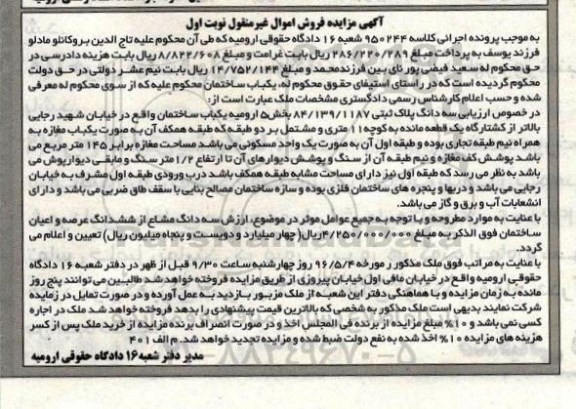 آگهی مزایده فروش اموال غیر منقول نوبت اول
به موجب پرونده اجرائی کلاسه ۹۵۰۲۴۴ شعبه ۱۶ دادگاه حقوقی ارومیه که طی آن محکوم علیه تاج الدین بروکانلو مادلو
فرزند یوسف به پرداخت مبلغ ۲۸۶/۲۲۰/۲۸۹ ریال بابت غرامت و مبلغ ۸/۸۲۲/۶۰۸ ریال بابت هزینه دادرسی در
حق محکوم له سعید فیضی پور نای بین فرزند محمد و مبلغ ۱۴/۷۵۲/۱۴۴ ریال بابت نیم عشر دولتی در حق دولت
محکوم گردیده است که در راستای استیفای حقوق محکوم له، یکباب ساختمان محکوم علیه که از سوی محکوم له معرفی
شده و حسب اعلام کارشناس رسمی دادگستری مشخصات ملک عبارت است از:
در خصوص ارزیابی سه دانگ پلاک ثبتی ۸۴/۱۳۹/۱۱۸۷ بخش ۵ ارومیه یکباب ساختمان واقع در خیابان شهید رجایی
بالاتر از کشتارگاه یک قطعه مانده به کوچه ۱۱ متری و مشتمل بر دو طبقه که طبقه همکف آن به صورت یکباب مغازه به
همراه نیم طبقه تجاری بوده و طبقه اول آن به صورت یک واحد مسکونی می باشد مساحت مغازه برابر ۱۴۵ متر مربع می
باشد پوشش کف مغازه و نیم طبقه آن از سنگ و پوشش دیوارهای آن تا ارتفاع ۱/۲ متر سنگ و مابقی دیوارپوش می
باشد به نظر می رسد که طبقه اول نیز دارای مساحت مشابه طبقه همکف باشد درب ورودی طبقه اول مشرف به خیابان
رجایی می باشد و دربها و پنجره های ساختمان فلزی بوده و سازه ساختمان مصالح بنایی با سقف طاق ضربی می باشد و دارای
انشعابات آب و برق و گاز می باشد.
با عنایت به موارد مطروحه و با توجه به جمیع عوامل موثر در موضوع، ارزش سه دانگ مشاع از ششدانگ عرصه و اعیان
ساختمان فوق الذکر به مبلغ ۴/۲۵۰/۰۰۰/۰۰۰ ریال( چهار میلیارد و دویست و پنجاه میلیون ریال) تعیین و اعلام می
گردد.
با عنایت به مراتب فوق ملک مذکور ر مورخه ۹۶/۵/۴ روز چهارشنبه ساعت ۹/۳۰ قبل از ظهر در دفتر شعبه ۱۶ دادگاه
حقوقی ارومیه واقع در خیابان مافی اول خیابان پیروزی از طریق مزایده فروخته خواهد شد طالبین می توانند پنج روز
مانده به زمان مزایده و با هماهنگی دفتر این شعبه از ملک مزبور بازدید به عمل آورده و در صورت تمایل در زمایده
شرکت نمایند بدیهی است ملک مذکور به شخصی که بالاترین قیمت پیشنهادی را بدهد فروخته خواهد شد ملک در اجاره
کسی نمی باشد و ۱۰% مبلغ مزایده از برنده فی المجلس اخذ و در صورت انصراف برنده مزایده از خرید ملک پس از کسر
هزینه های مزایده ۱۰% اخذ شده به نفع دولت ضبط شده و مزایده تجدید خواهد شد. م الف ۴۰۱
مدیر دفتر شعبه ۱۶ دادگاه حقوقی ارومیه